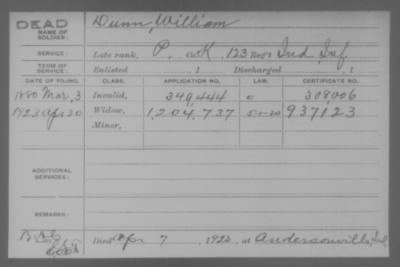 DEAD
NAME OF SOLDIER:
Dunn, William
SERVICE:
Late rank, P. Co. K, 123 Reg't Ind. Inf.
TERM OF SERVICE:
Enlisted , 1 Discharged , 1
DATE OF FILING. CLASS. APPLICATION NO. LAW. CERTIFICATE NO.
1880 Mar. 3 Invalid, 349,444 308,006
1923 Apr 30 Widow, 1,204,737 937,123
Minor,
ADDITIONAL SERVICES:
REMARKS:
Died Apr 7, 1923, at Andersonville, Ind.